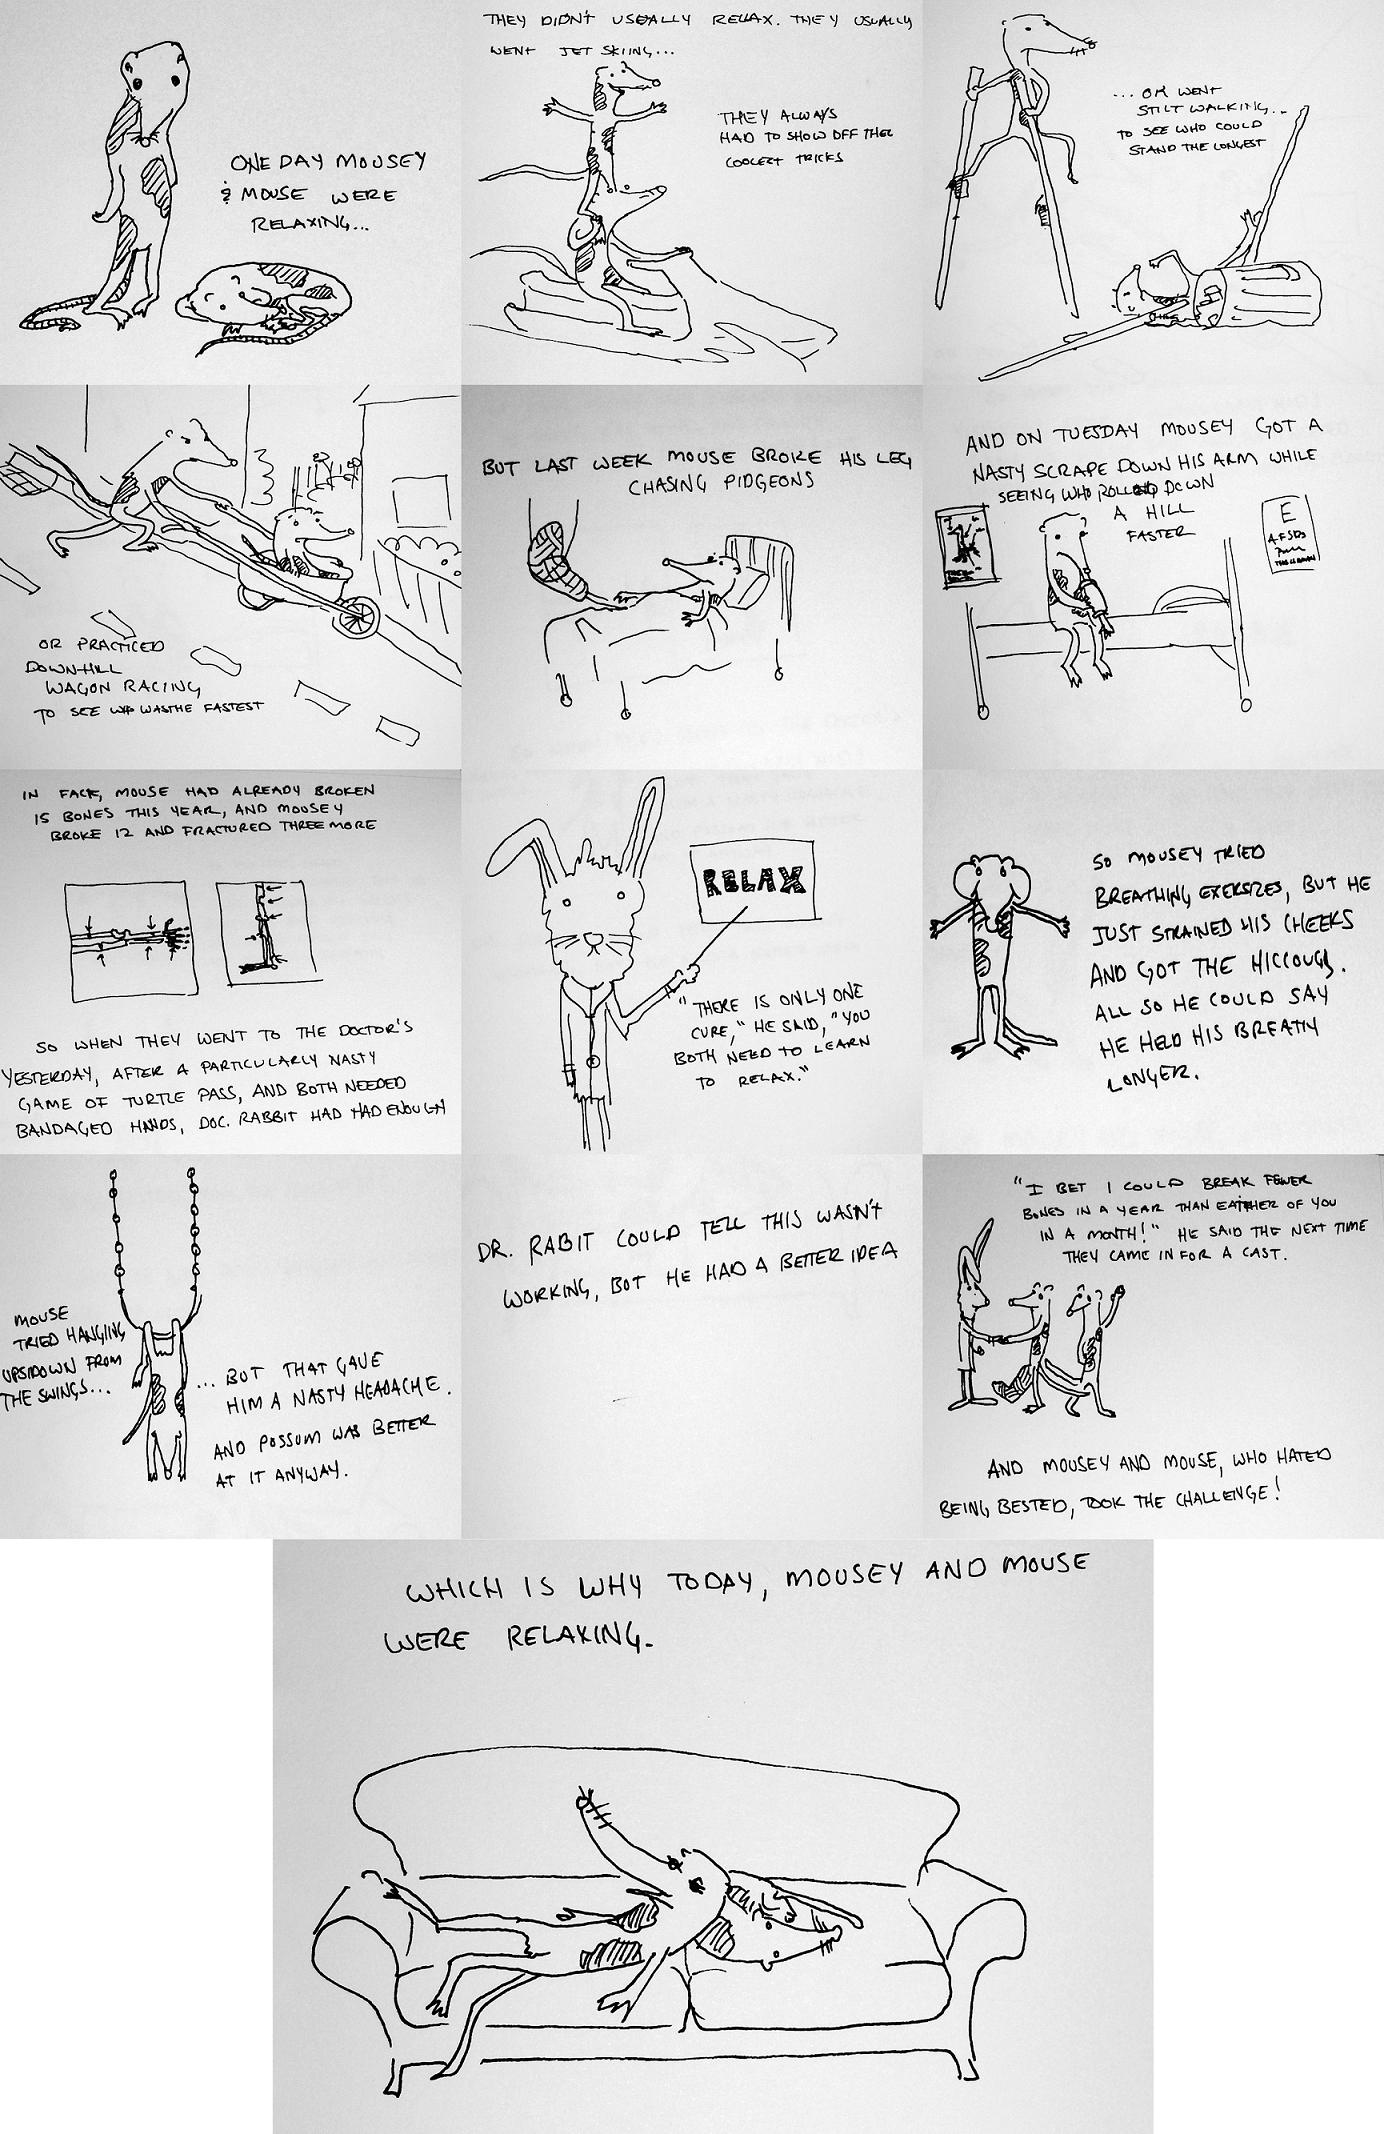 ONE DAY MOUSEY
& MOUSE WERE
RELAXING...
THEY DIDN'T USUALLY RELAX. THEY USUALLY
WENT JET SKIING...
THEY ALWAYS
HAD TO SHOW OFF THEIR
COOLEST TRICKS
... OR WENT
STILT WALKING...
TO SEE WHO COULD
STAND THE LONGEST
OR PRACTICED
DOWN-HILL
WAGON RACING
TO SEE WHO WAS THE FASTEST
BUT LAST WEEK MOUSE BROKE HIS LEG
CHASING PIDGEONS
AND ON TUESDAY MOUSEY GOT A
NASTY SCRAPE DOWN HIS ARM WHILE
SEEING WHO ROLLED DOWN
A HILL
FASTER
E
IN FACT, MOUSE HAD ALREADY BROKEN
15 BONES THIS YEAR, AND MOUSEY
BROKE 12 AND FRACTURED THREE MORE
SO WHEN THEY WENT TO THE DOCTOR'S
YESTERDAY, AFTER A PARTICULARLY NASTY
GAME OF TURTLE PASS, AND BOTH NEEDED
BANDAGED HANDS, DOC. RABBIT HAD HAD ENOUGH
RELAX
"THERE IS ONLY ONE
CURE," HE SAID, "YOU
BOTH NEED TO LEARN
TO RELAX."
SO MOUSEY TRIED
BREATHING EXERSIZES, BUT HE
JUST STRAINED HIS CHEEKS
AND GOT THE HICCOUGHS.
ALL SO HE COULD SAY
HE HELD HIS BREATH
LONGER.
MOUSE
TRIED HANGING
UPSIDOWN FROM
THE SWINGS...
... BUT THAT GAVE
HIM A NASTY HEADACHE.
AND POSSUM WAS BETTER
AT IT ANYWAY.
DR. RABIT COULD TELL THIS WASN'T
WORKING, BUT HE HAD A BETTER IDEA
"I BET I COULD BREAK FEWER
BONES IN A YEAR THAN EATHER OF YOU
IN A MONTH!" HE SAID THE NEXT TIME
THEY CAME IN FOR A CAST.
AND MOUSEY AND MOUSE, WHO HATED
BEING BESTED, TOOK THE CHALLENGE!
WHICH IS WHY TODAY, MOUSEY AND MOUSE
WERE RELAXING.